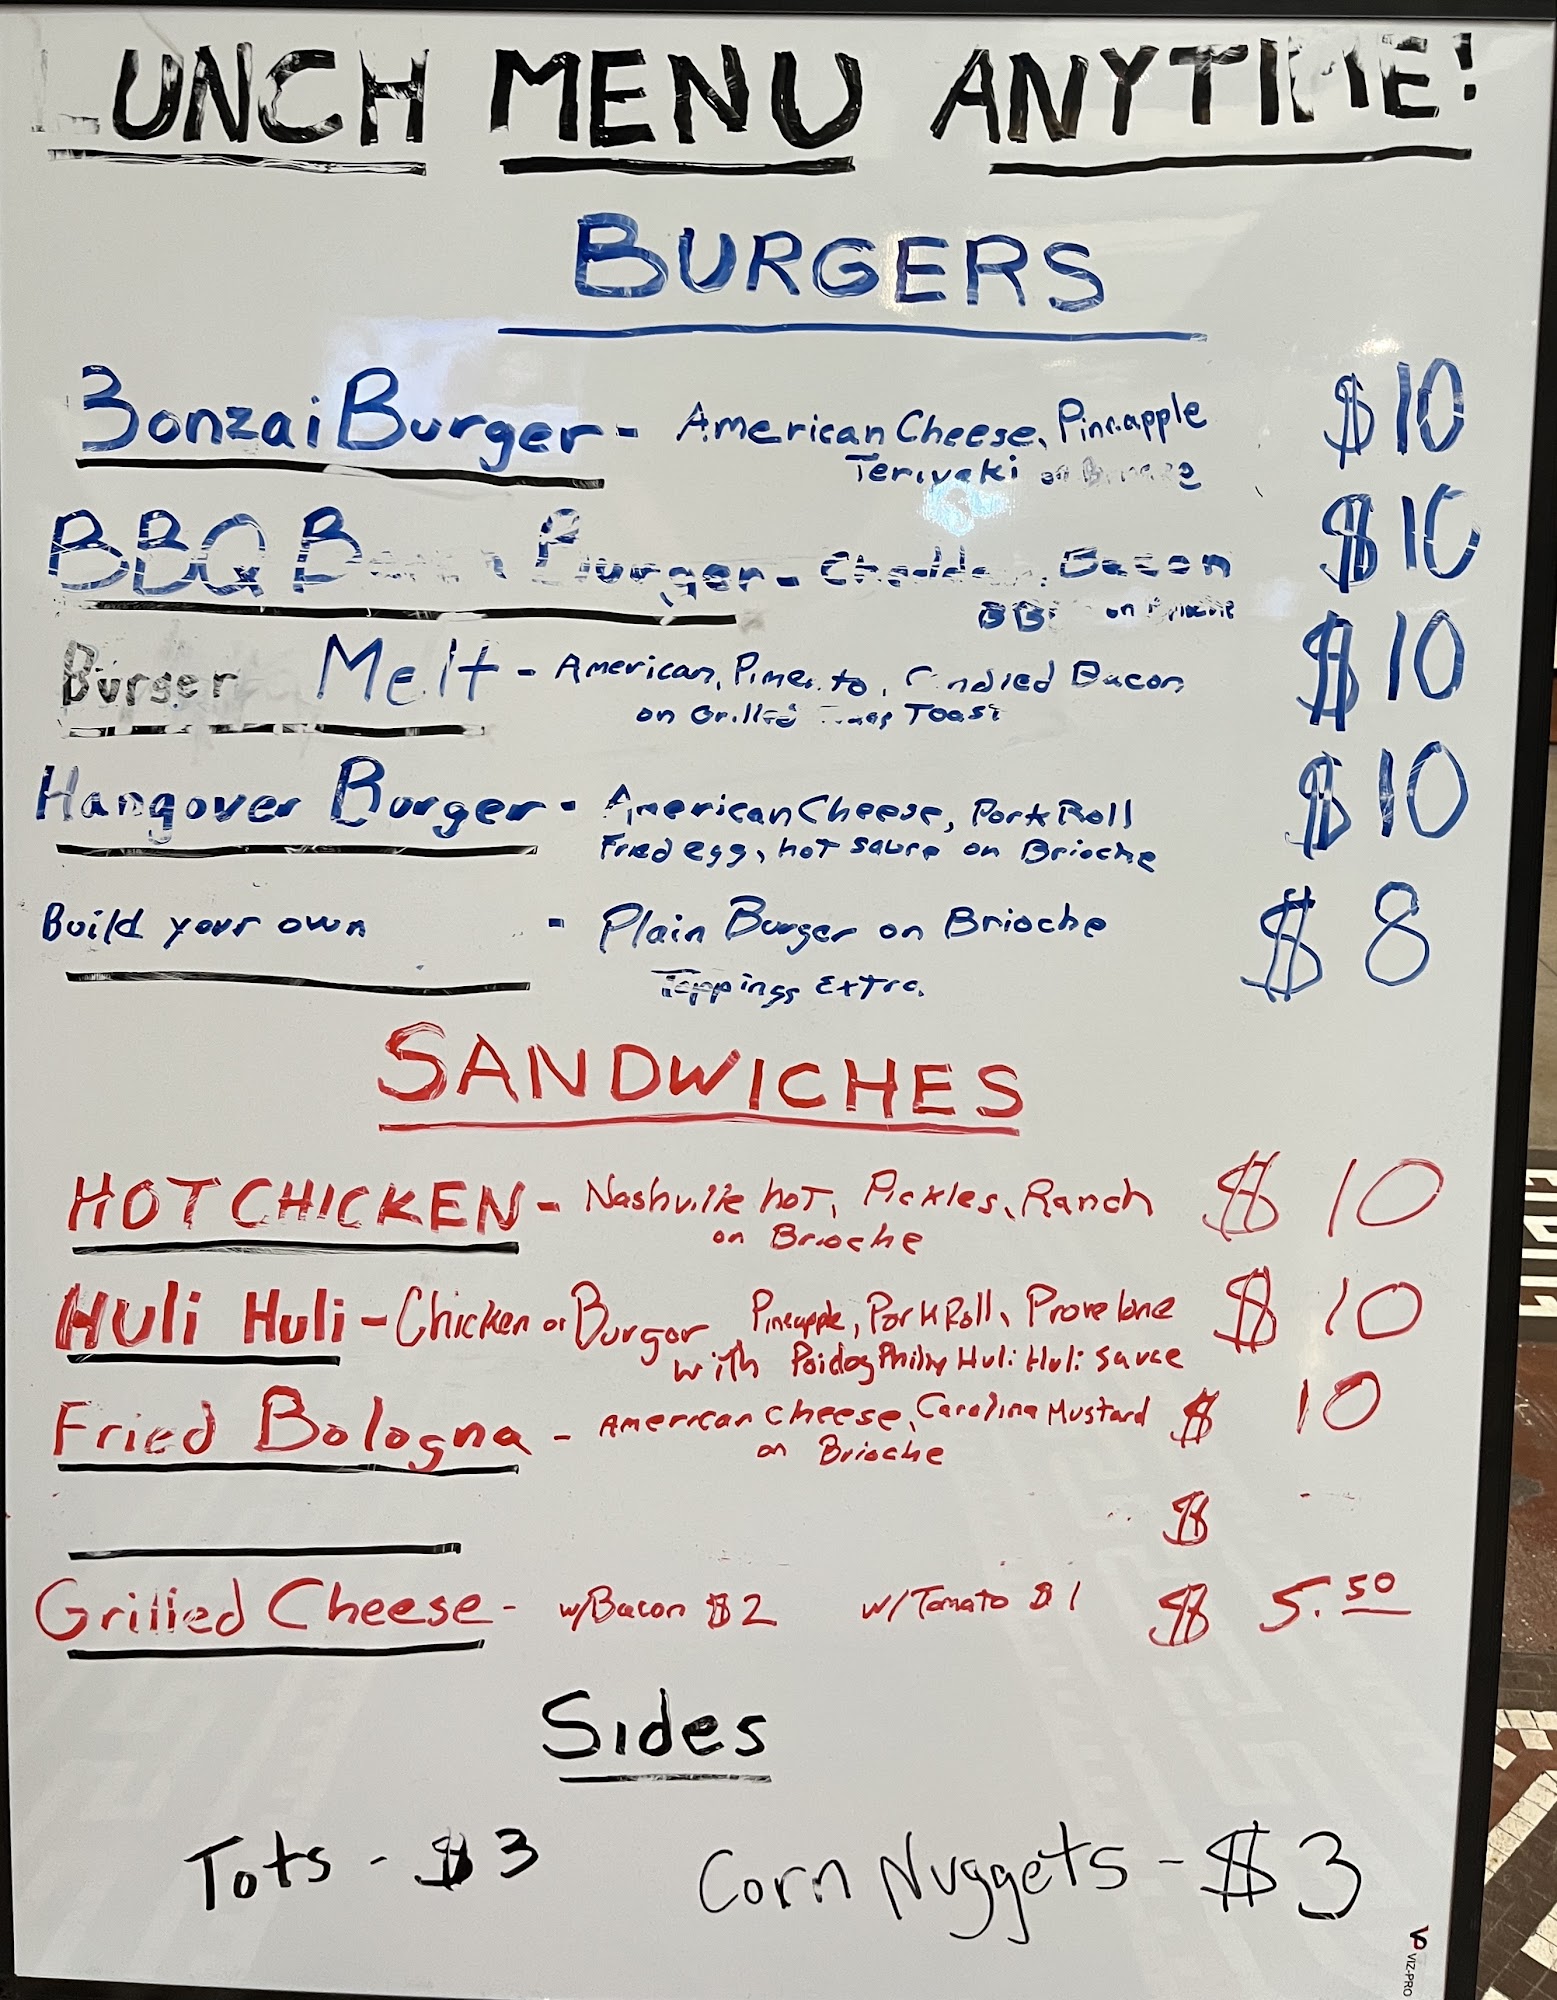 LUNCH MENU ANYTIME!
BURGERS
Bonzai Burger - American Cheese, Pineapple $10
Teriyaki on
BBQ Bacon Burger - Cheddar, Bacon $10
BBQ on Brioche
Burger Melt - American, Pimento, Candied Bacon $10
on Grilled Toast
Hangover Burger - American Cheese, Pork Roll $10
Fried egg, hot sauce on Brioche
Build your own - Plain Burger on Brioche $8
Toppings Extra.
SANDWICHES
HOT CHICKEN - Nashville hot, Pickles, Ranch $10
on Brioche
Huli Huli - Chicken or Burger Pineapple, Pork Roll, Provolone $10
with Poidog Philly Huli Huli sauce
Fried Bologna - American cheese, Carolina Mustard $10
on Brioche
$
Grilled Cheese - w/Bacon $2 w/Tomato $1 $5.50
Sides
Tots - $3 Corn Nuggets - $3
VIZ-PRO